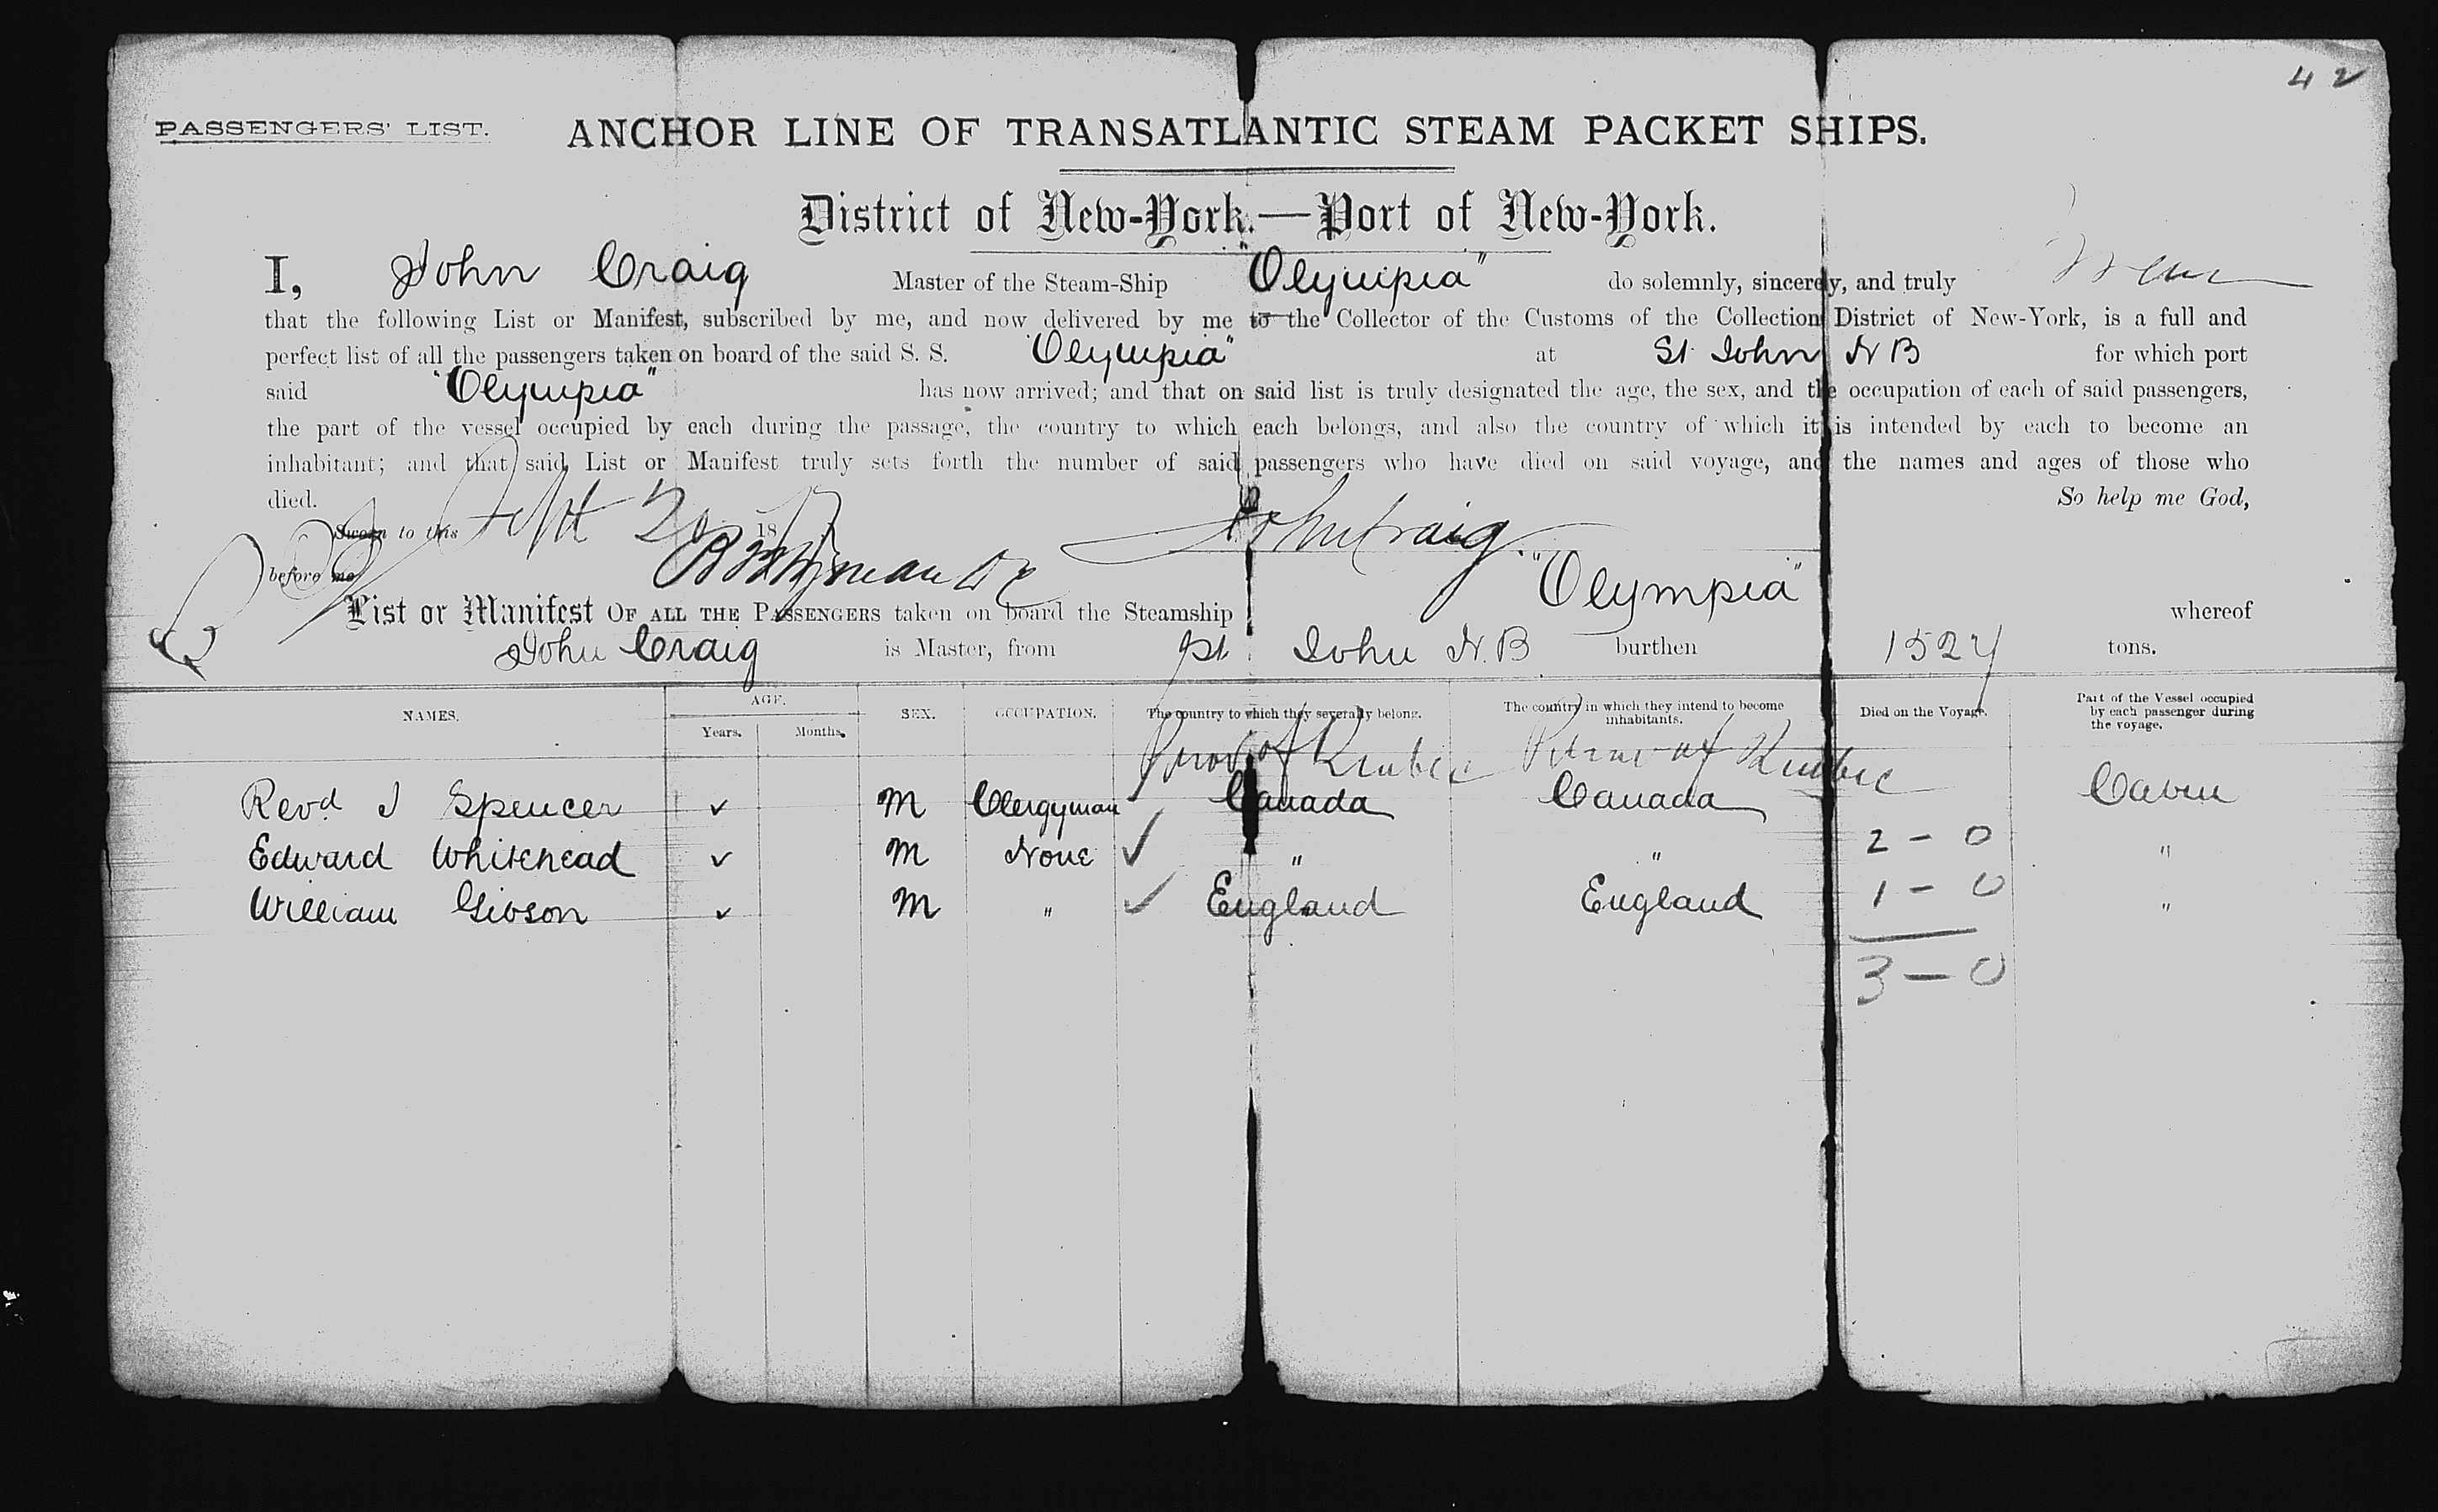 42
PASSENGERS' LIST. ANCHOR LINE OF TRANSATLANTIC STEAM PACKET SHIPS.
District of New-York.—Port of New-York.
I, John Craig Master of the Steam-Ship "Olympia" do solemnly, sincerely, and truly swear
that the following List or Manifest, subscribed by me, and now delivered by me to the Collector of the Customs of the Collection District of New-York, is a full and
perfect list of all the passengers taken on board of the said S. S. "Olympia" at St. John N B for which port
said "Olympia" has now arrived; and that on said list is truly designated the age, the sex, and the occupation of each of said passengers,
the part of the vessel occupied by each during the passage, the country to which each belongs, and also the country of which it is intended by each to become an
inhabitant; and that said List or Manifest truly sets forth the number of said passengers who have died on said voyage, and the names and ages of those who
died. So help me God,
Sworn to this Sept 20 18 John Craig
before me
List or Manifest OF ALL THE PASSENGERS taken on board the Steamship "Olympia" whereof
John Craig is Master, from St. John N.B burthen tons.
NAMES. AGE. Years. Months. SEX. OCCUPATION. The country to which they severally belong. The country in which they intend to become inhabitants. Died on the Voyage. Part of the Vessel occupied by each passenger during the voyage.
Prov of Quebec Prov of Quebec
Revd J Spencer ✓ M Clergyman Canada Canada Cabin
Edward Whitehead ✓ M None ✓ " " 2 - 0 "
William Gibson ✓ M " ✓ England England 1 - 0 "
3 - 0